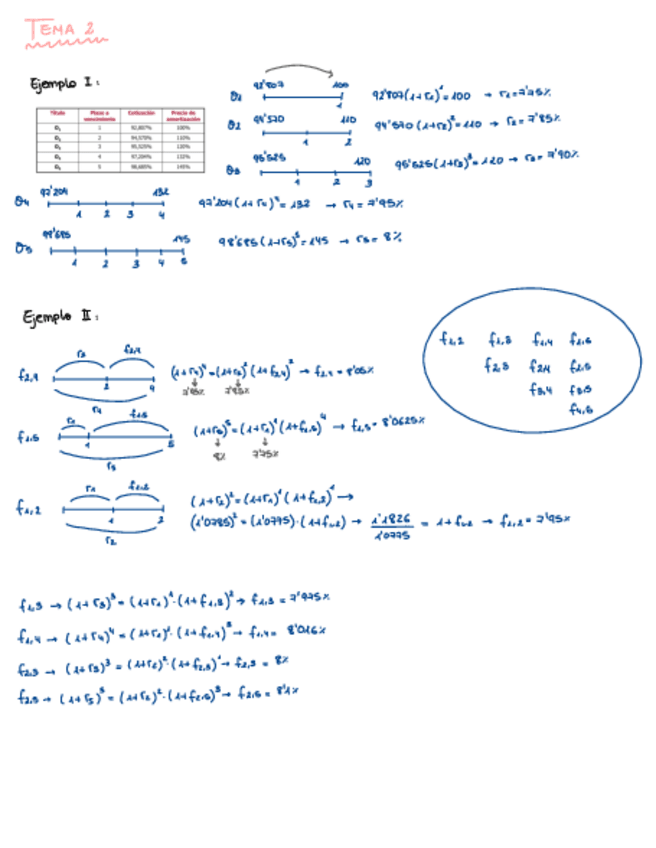 TEMA 2
Ejemplo I:
Título Plazo a vencimiento Cotización Precio de amortización
O₁ 1 92,807% 100%
O₂ 2 94,570% 110%
O₃ 3 95,525% 120%
O₄ 4 97,204% 132%
O₅ 5 98,685% 145%
θ1 92'807 100 1 92'807(1+r₁)¹=100 → r₁=7'75%
θ2 94'570 110 1 2 94'570(1+r₂)²=110 → r₂=7'85%
θ3 95'525 120 1 2 3 95'525(1+r₃)³=120 → r₃=7'90%
θ4 97'204 132 1 2 3 4 97'204(1+r₄)⁴=132 → r₄=7'95%
θ5 98'685 145 1 2 3 4 5 98'685(1+r₅)⁵=145 → r₅=8%
Ejemplo II:
f1,2 f1,3 f1,4 f1,5
f2,3 f2,4 f2,5
f3,4 f3,5
f4,5
f2,4 r₂ f2,4 2 4 r₄ (1+r₄)⁴=(1+r₂)²(1+f2,4)² → f2,4=8'05%
7'95% 7'85%
f1,5 r₁ f1,5 1 5 r₅ (1+r₅)⁵=(1+r₁)¹(1+f1,5)⁴ → f1,5=8'0625%
8% 7'75%
f1,2 r₁ f1,2 1 2 r₂ (1+r₂)²=(1+r₁)¹(1+f1,2)¹ →
(1'0785)²=(1'0775)·(1+f1,2) → 1'1826/1'0775 = 1+f1,2 → f1,2=7'95%
f1,3 → (1+r₃)³=(1+r₁)¹·(1+f1,3)² → f1,3=7'975%
f1,4 → (1+r₄)⁴=(1+r₁)¹·(1+f1,4)³ → f1,4=8'016%
f2,3 → (1+r₃)³=(1+r₂)²·(1+f2,3)¹ → f2,3=8%
f2,5 → (1+r₅)⁵=(1+r₂)²·(1+f2,5)³ → f2,5=8'1%